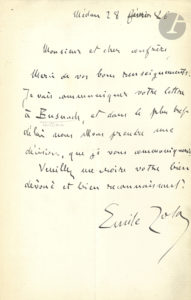 Médan 28 février 80
Monsieur et cher confrère
Merci de vos bons renseignements.
Je vais communiquer votre lettre
à Busnach, et dans le plus bref
délai nous allons prendre une
décision, que je vous communiquerai.
Veuillez me croire votre bien
dévoué et bien reconnaissant
Emile Zola